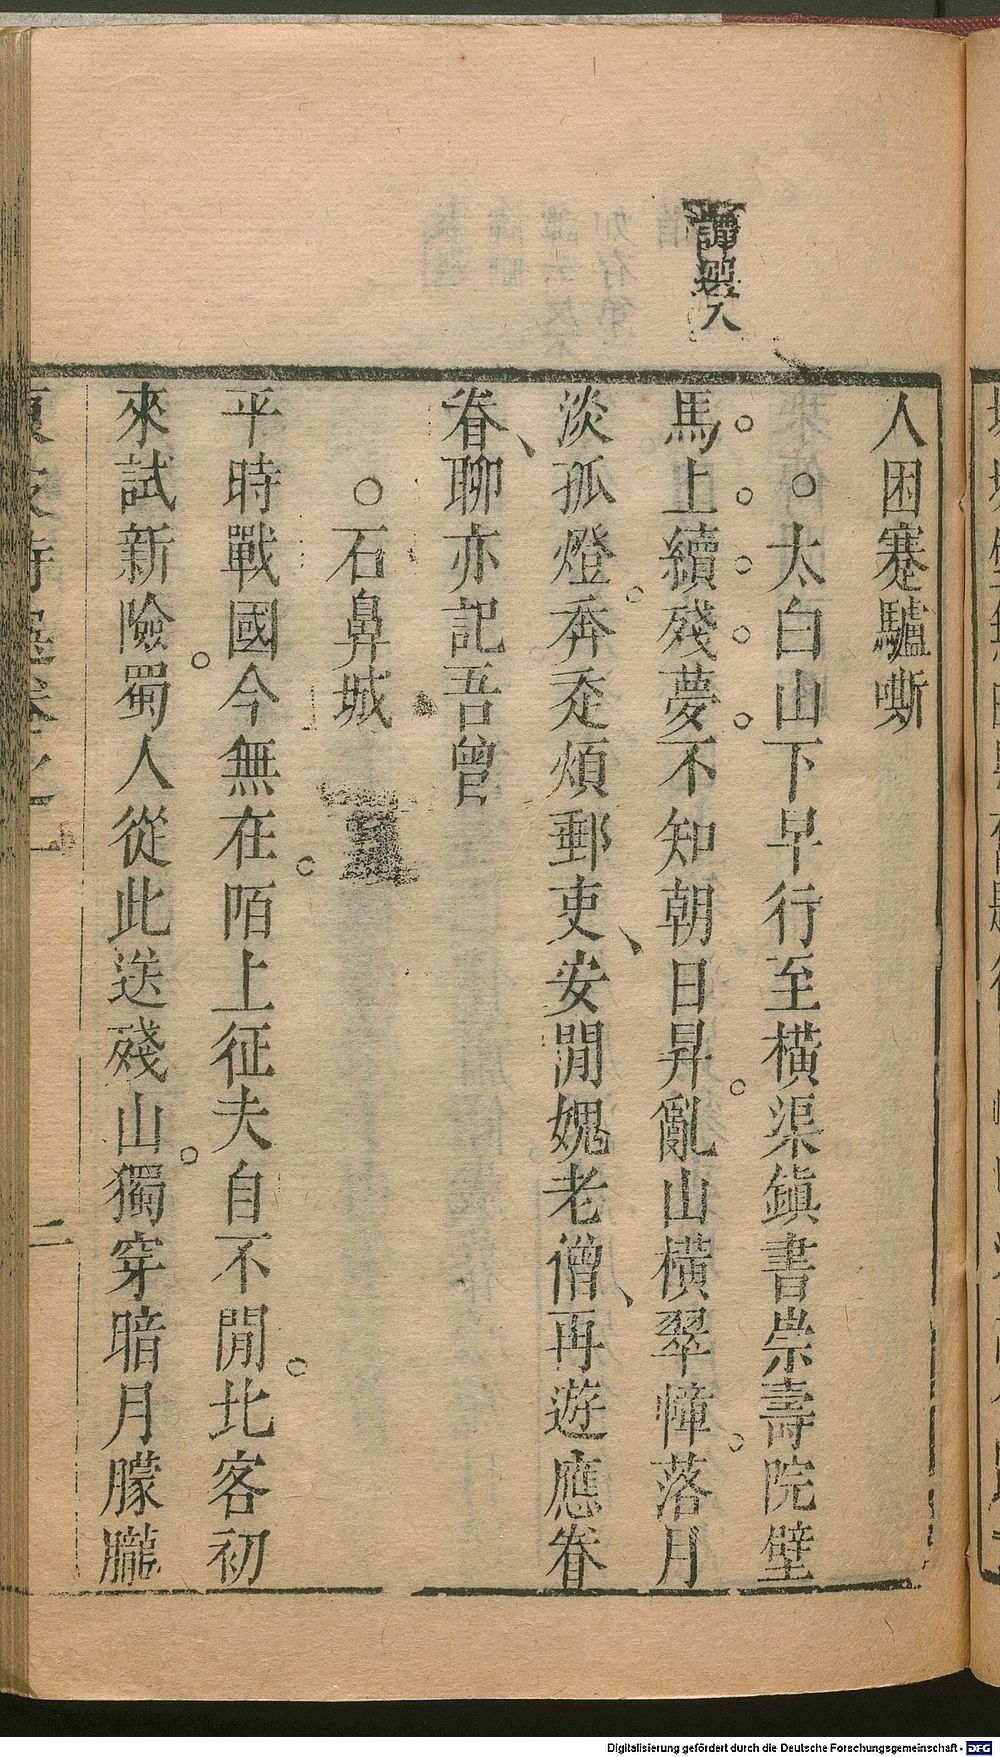 譚選入
人困蹇驢嘶
○太白山下早行至橫渠鎮書崇壽院壁
馬上續殘夢不知朝日昇亂山橫翠幛落月
淡孤燈奔走煩郵吏安閒媿老僧再遊應眷
眷聊亦記吾曾
○石鼻城
平時戰國今無在陌上征夫自不閒北客初
來試新險蜀人從此送殘山獨穿暗月朦朧
二
Digitalisierung gefördert durch die Deutsche Forschungsgemeinschaft - DFG